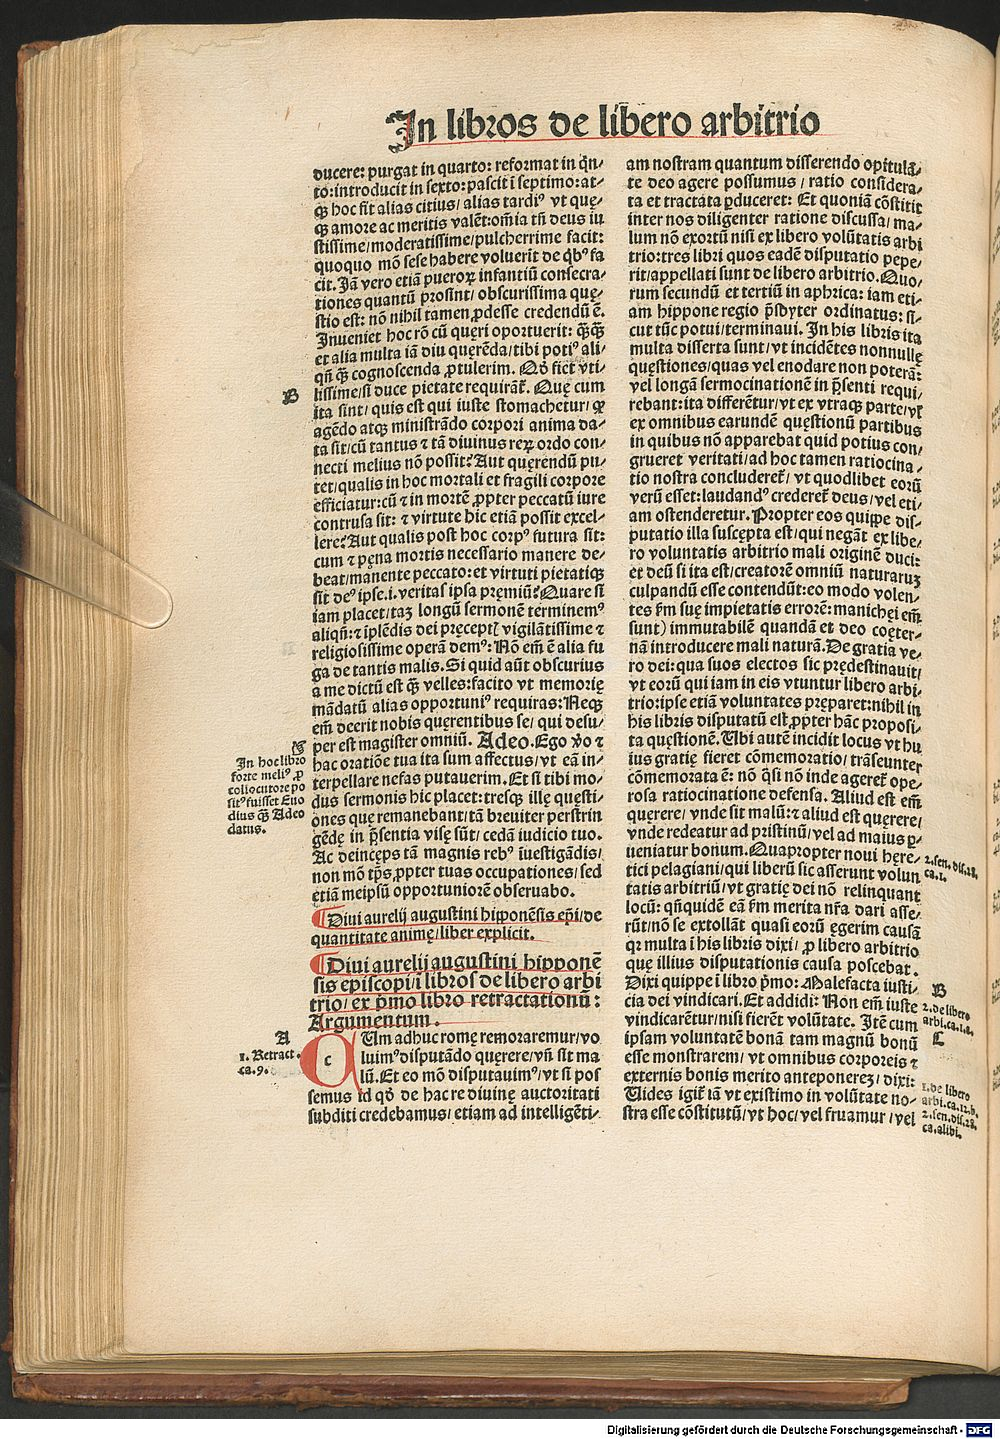 In libros de libero arbitrio
ducere: purgat in quarto: reformat in q̈n/
to: introducit in sexto: pascit ī septimo: at-
qꝫ hoc fit alias citius/ alias tardiꝰ vt quę/
qꝫ amore ac meritis valēt: oīa tn̄ deus iu
stissime/ moderatissime/ pulcherrime facit:
quoquo mō sese habere voluerit de qbꝰ fa
cit. Iā vero etiā pueroꝝ infantiū consecra-
tiones quantū prosint/ obscurissima quę-
stio est: nō nihil tamen ꝓdesse credendū ē.
Inueniet hoc rō cū quęri oportuerit: qꝫqꝫ
et alia multa iā diu quęrēda/ tibi potiꝰ ali/
qn̄ qꝫ cognoscenda ꝓtulerim. Qđ fiet vti-
lissime/ si duce pietate requirāt᷑. Quę cum
ita sint/ quis est qui iuste stomachetur/ ꝙ
agēdo atqꝫ ministrādo corpori anima da-
ta sit/ cū tantus ⁊ tā diuinus reꝝ ordo con-
necti melius nō possit? Aut quęrendū pu-
tet/ qualis in hoc mortali et fragili corpore
efficiatur: cū ⁊ in mortē ꝓpter peccatū iure
contrusa sit: ⁊ virtute hic etiā possit excel-
lere? Aut qualis post hoc corpꝰ futura sit:
cum ⁊ pęna mortis necessario manere de-
beat/ manente peccato: et virtuti pietatiqꝫ
sit deꝰ ipse .i. veritas ipsa pręmiū? Quare si
iam placet/ taꝫ longū sermonē terminemꝰ
aliqn̄: ⁊ īplēdis dei pręceptꝭ vigilātissime ⁊
religiosissime operā demꝰ: Nō em̄ ē alia fu
ga de tantis malis. Si quid aūt obscurius
a me dictū est qꝫ velles: facito vt memorię
mādatū alias opportuniꝰ requiras: Neqꝫ
em̄ deerit nobis quęrentibus se/ qui desu/
per est magister omniū. Adeo. Ego v̄o ⁊
hac oratiōe tua ita sum affectus/ vt eā in-
terpellare nefas putauerim. Et si tibi mo-
dus sermonis hic placet: tresqꝫ illę quęsti-
ones quę remanebant/ tā breuiter perstrin
gēdę in p̄sentia visę sūt/ cedā iudicio tuo.
Ac deincęps tā magnis rebꝰ īuestigādis/
non mō tp̄s ꝓpter tuas occupationes/ sed
etiā meipsū opportuniorē obseruabo.
¶ Diui aurelij augustini hipponēsis ep̄i/ de
quantitate animę/ liber explicit.
¶ Diui aurelij augustini hipponē
sis episcopi/ ī libros de libero arbi
trio/ ex p̄mo libro retractationū:
Argumentum.
CUm adhuc romę remoraremur/ vo
luimꝰ disputādo quęrere/ vn̄ sit ma
lū. Et eo mō disputauimꝰ/ vt si pos
semus id qđ de hac re diuinę auctoritati
subditi credebamus/ etiam ad intelligēti-
B
In hoc libro
forte meliꝰ ꝓ
collocutore po
sitꝰ fuisset Euo
dius qꝫ Adeo
datus.
A
1. Retract.
ca. 9.
am nostram quantum disserendo opitulā/
te deo agere possumus/ ratio considera/
ta et tractata ꝑduceret: Et quoniā cōstitit
inter nos diligenter ratione discussa/ ma/
lum nō exortū nisi ex libero volūtatis arbi
trio: tres libri quos eadē disputatio pepe/
rit/ appellati sunt de libero arbitrio. Quo/
rum secundū et tertiū in aphrica: iam eti-
am hippone regio p̄sbyter ordinatus: si-
cut tūc potui/ terminaui. In his libris ita
multa disserta sunt/ vt incidētes nonnullę
quęstiones/ quas vel enodare non poterā:
vel longā sermocinationē in p̄senti requi/
rebant: ita differētur/ vt ex vtraqꝫ parte/ vl̓
ex omnibus earundē quęstionū partibus
in quibus nō apparebat quid potius con/
grueret veritati/ ad hoc tamen ratiocina/
tio nostra concluderet᷑/ vt quodlibet eorū
verū esset: laudandꝰ crederet᷑ deus/ vel eti/
am ostenderetur. Propter eos quippe dis-
putatio illa suscępta est/ qui negāt ex libe/
ro voluntatis arbitrio mali originē duci:
et deū si ita est/ creatorē omniū naturaruꝫ
culpandū esse contendūt: eo modo volen/
tes ẜm suę impietatis errorē: manichęi em̄
sunt) immutabilē quandā et deo coęter-
nā introducere mali naturā. De gratia ve/
ro dei: qua suos electos sic prędestinauit/
vt eorū qui iam in eis vtuntur libero arbi/
trio: ipse etiā voluntates pręparet: nihil in
his libris disputatū est ꝓpter hāc proposi/
ta quęstionē. Ubi autē incidit locus vt hu
ius gratię fieret cōmemoratio/ trāseunter
cōmemorata ē: nō q̄si nō inde ageret᷑ ope/
rosa ratiocinatione defensa. Aliud est em̄
quęrere/ vnde sit malū: ⁊ aliud est quęrere/
vnde redeatur ad pristinū/ vel ad maius ꝑ-
ueniatur bonum. Quapropter noui hęre/
tici pelagiani/ qui liberū sic asserunt volun
tatis arbitriū/ vt gratię dei nō relinquant
locū: qn̄quidē eā ẜm merita nr̄a dari asse/
rūt/ nō se extollāt quasi eorū ęgerim causā
qꝛ multa ī his libris dixi/ ꝓ libero arbitrio
quę illius disputationis causa poscebat.
Dixi quippe ī libro p̄mo: Malefacta iusti/
cia dei vindicari. Et addidi: Non em̄ iuste
vindicarētur/ nisi fierēt volūtate. Itē cum
ipsam voluntatē bonā tam magnū bonū
esse monstrarem/ vt omnibus corporeis ⁊
externis bonis merito anteponereꝫ/ dixi:
Uides igit᷑ iā vt existimo in volūtate no-
stra esse cōstitutū/ vt hoc/ vel fruamur/ vel
2. sen. dis. 28.
ca. 1.
B
2. de libero
arbi. ca. 1. a.
C
1. de libero
arbi. ca. 12. b.
2. sen. dis. 28.
ca. alibi.
Digitalisierung gefördert durch die Deutsche Forschungsgemeinschaft - DFG